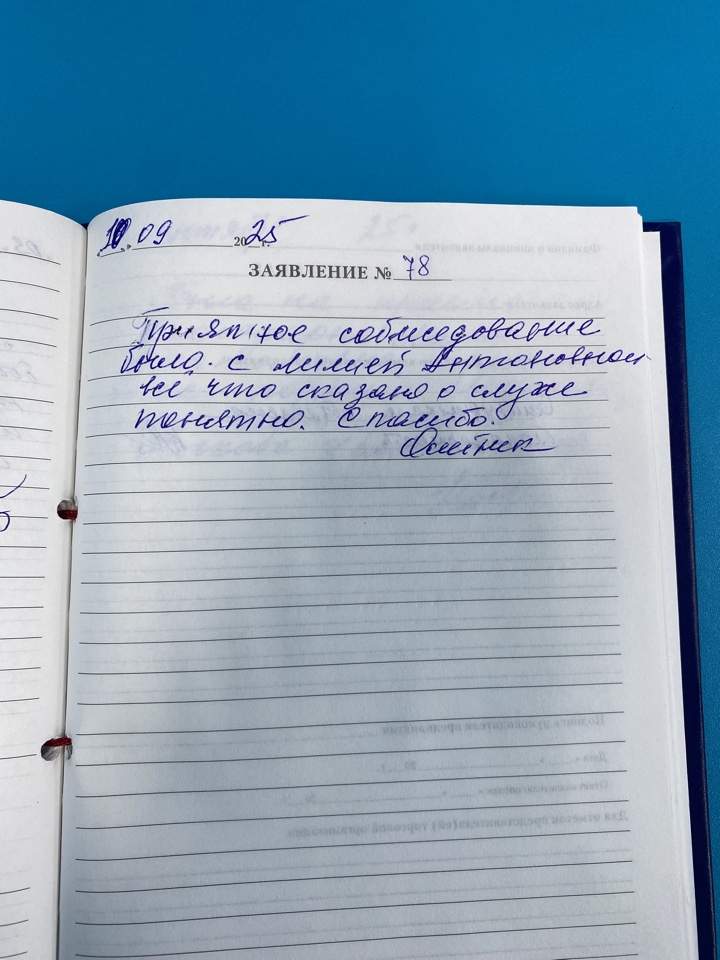 10.09 2025г.
ЗАЯВЛЕНИЕ № 78
Приятное собиседование
было. с Лилией Антоновной
всё что сказано о слухе
понятно. Спасибо.